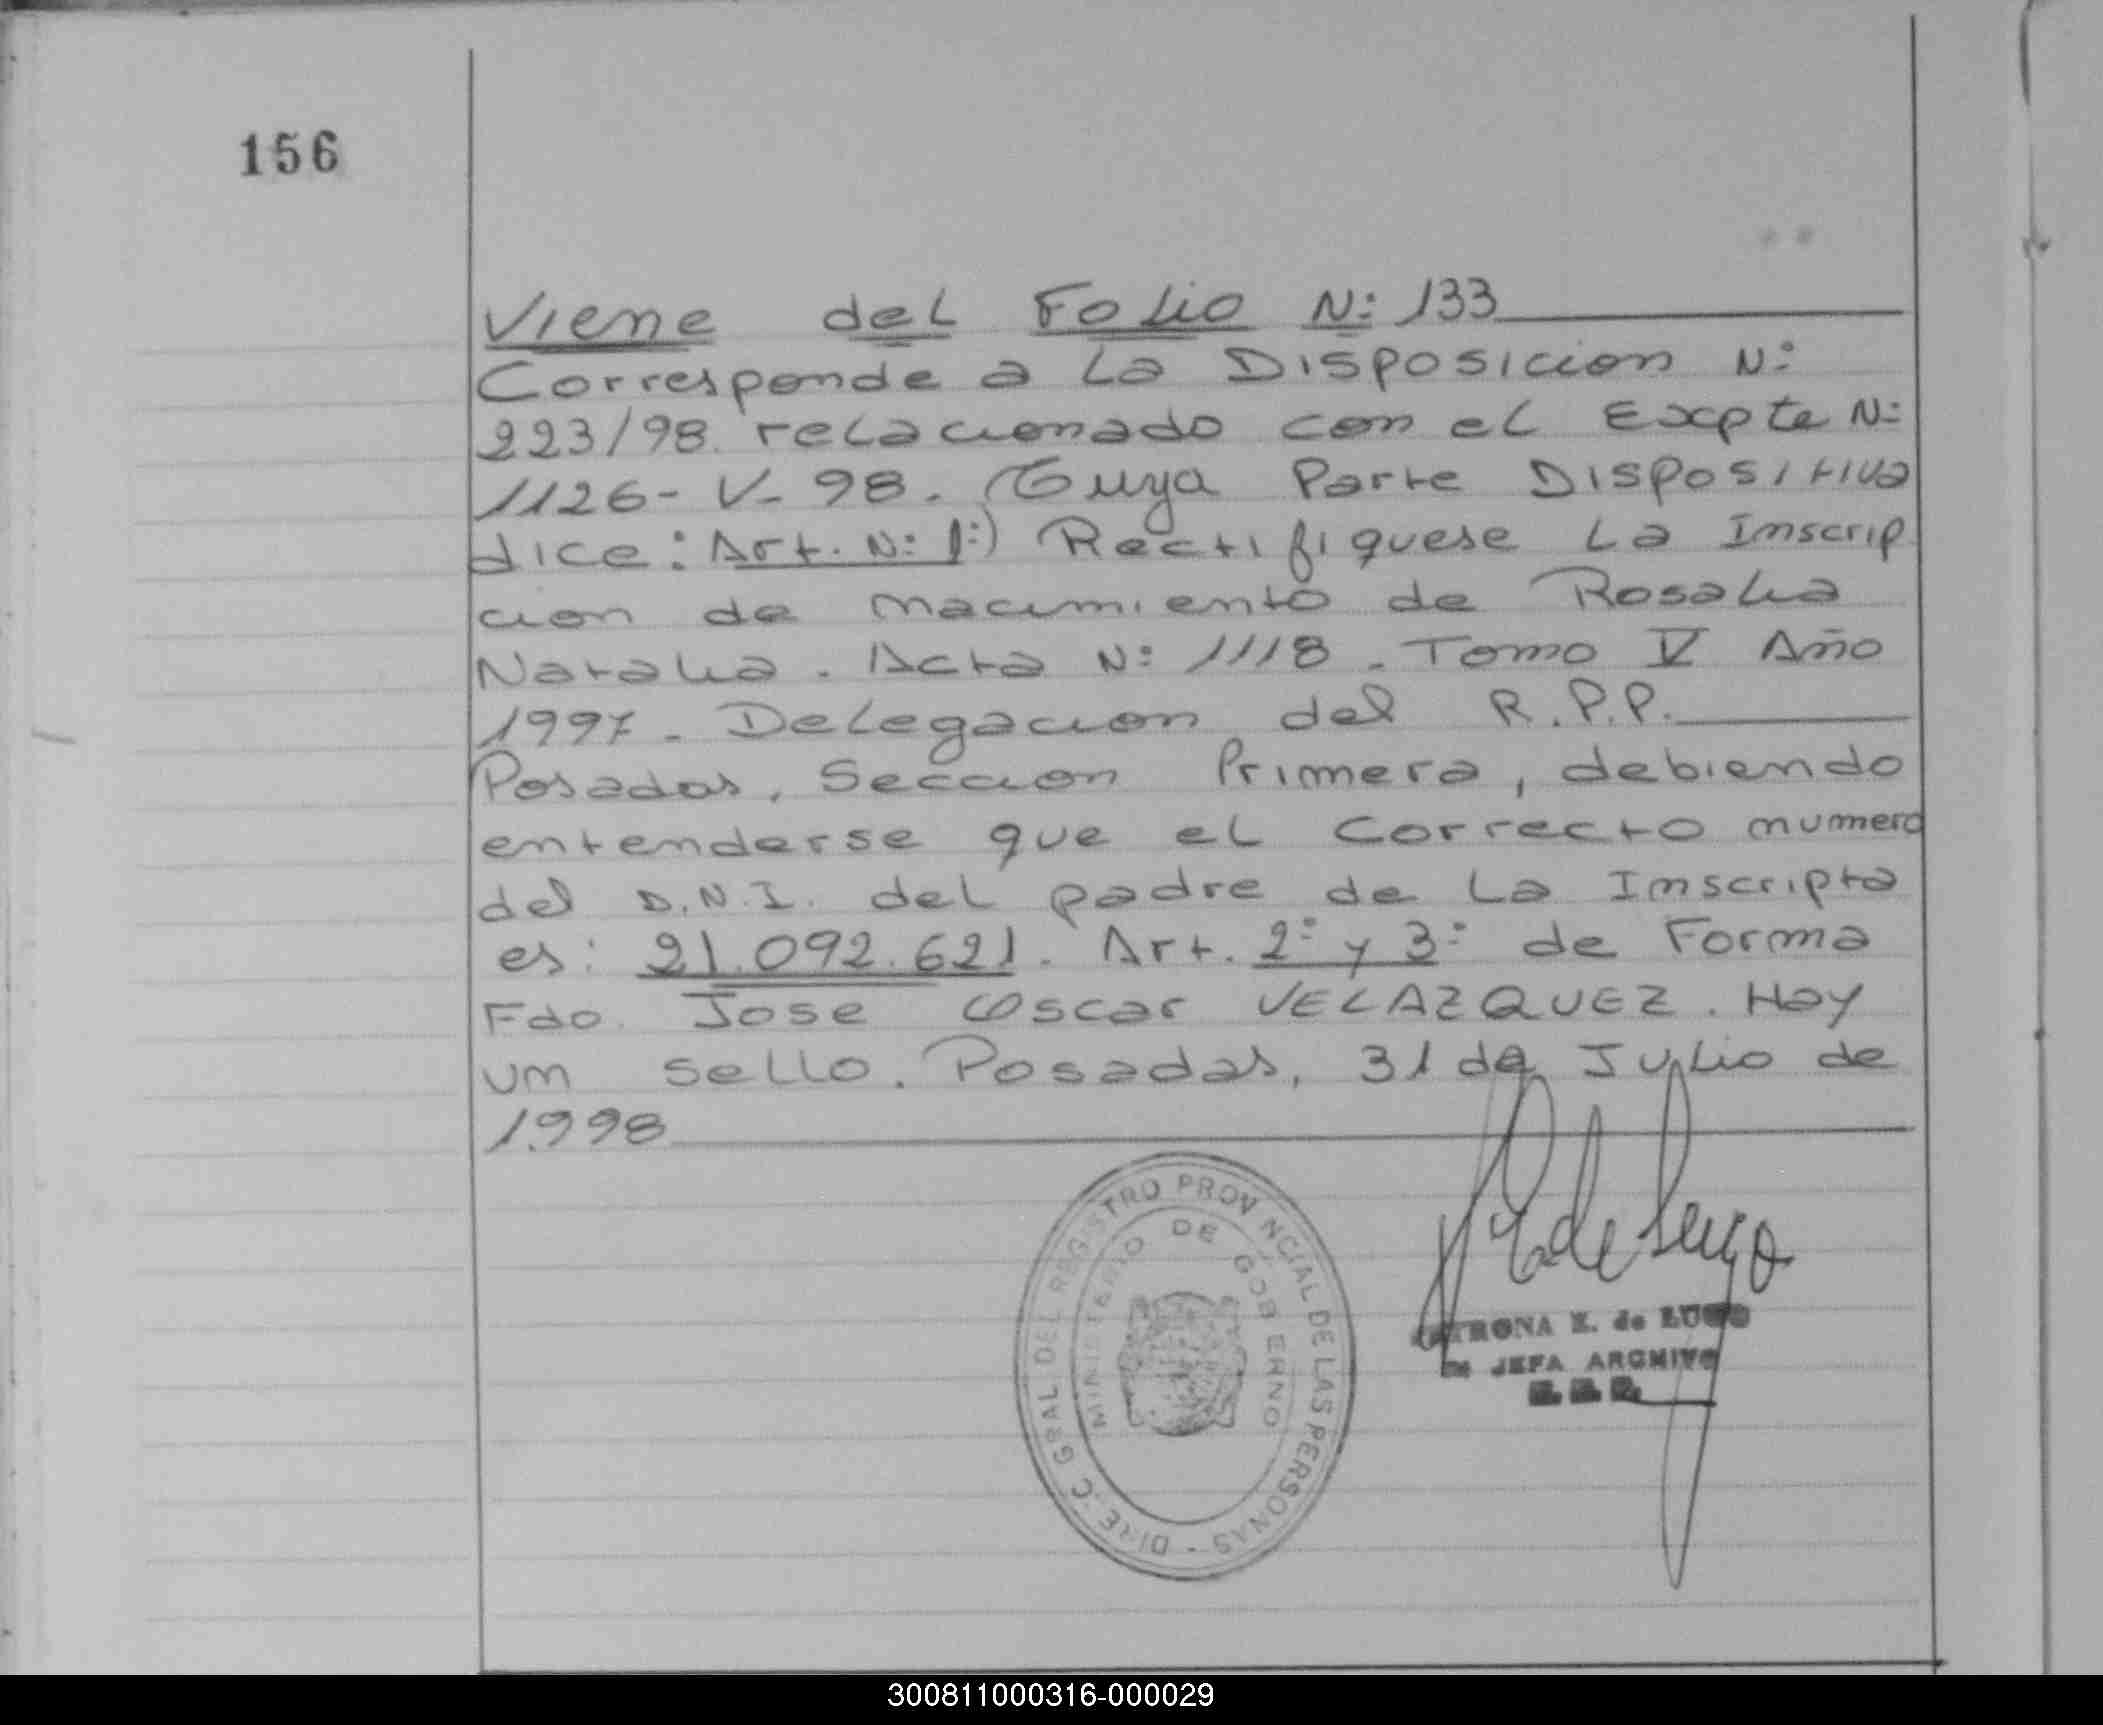 156
Viene del Folio N: 133
Corresponde a La Disposicion N:
223/98. relacionado con el Expte N:
1126- V- 98. Cuya Parte Dispositiva
dice: Art. N: 1:) Rectifiquese La Inscrip
cion de nacimiento de Rosalia
Natalia. Acta N: 1118. Tomo V Año
1997. Delegacion del R.P.P.
Posadas, Seccion Primera, debiendo
entenderse que el correcto numero
del D.N.I. del padre de La Inscripta
es: 21.092.621. Art. 2° y 3° de Forma
Fdo. Jose Oscar VELAZQUEZ. Hay
un sello. Posadas, 31 de Julio de
1.998
DIREC. GRAL DEL REGISTRO PROVINCIAL DE LAS PERSONAS -
MINISTERIO DE GOBIERNO
de Lugo
E. de LUGO
JEFA ARCHIVO
300811000316-000029